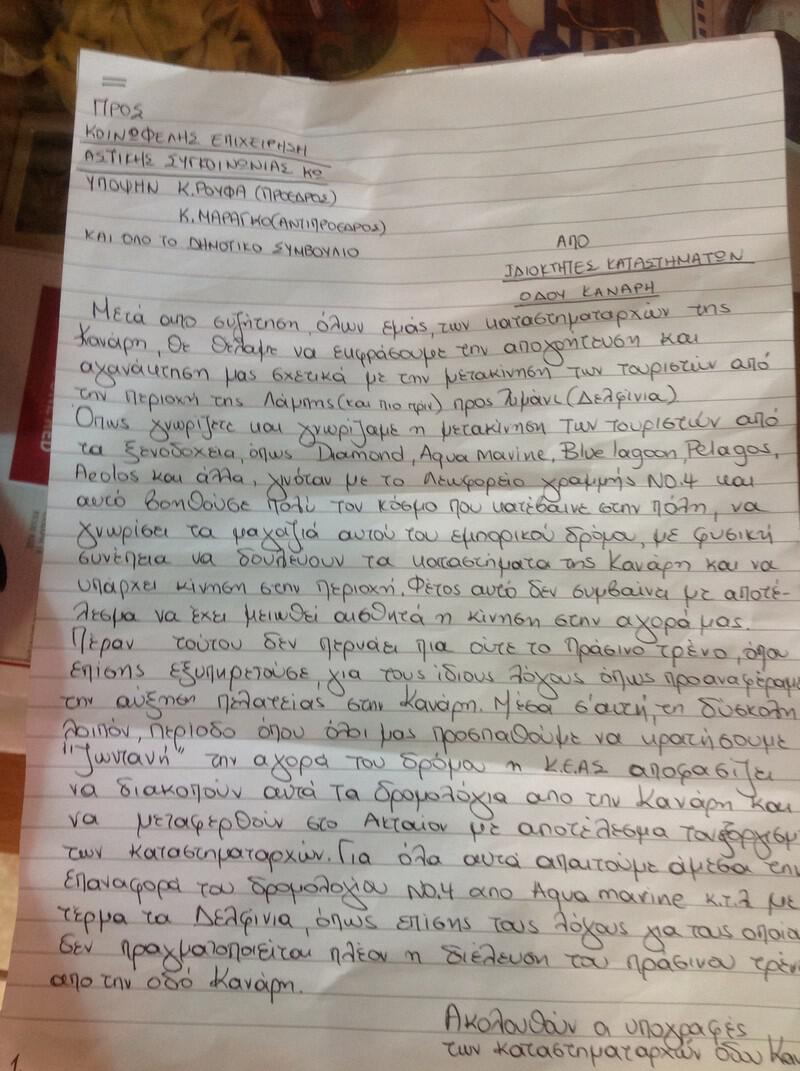 Προς
ΚΟΙΝΩΦΕΛΗΣ ΕΠΙΧΕΙΡΗΣΗ
ΑΣΤΙΚΗΣ ΣΥΓΚΟΙΝΩΝΙΑΣ ΚΩ
ΥΠΟΨΗΝ Κ.ΡΟΥΦΑ (ΠΡΟΕΔΡΟΣ)
Κ.ΜΑΡΑΓΚΟ (ΑΝΤΙΠΡΟΕΔΡΟΣ)
ΚΑΙ ΟΛΟ ΤΟ ΔΗΜΟΤΙΚΟ ΣΥΜΒΟΥΛΙΟ
ΑΠΟ
ΙΔΙΟΚΤΗΤΕΣ ΚΑΤΑΣΤΗΜΑΤΩΝ
ΟΔΟΥ ΚΑΝΑΡΗ
Μετά απο συζήτηση, όλων εμάς, των καταστηματαρχών της
Κανάρη, θε θέλαμε να εκφράσουμε την απογοήτευση και
αγανάκτηση μας σχετικά με την μετακίνηση των τουριστών από
την περιοχή της Λάμπης (και πιο πριν) προς λιμάνι (Δελφίνια)
Όπως γνωρίζετε και γνωρίζαμε η μετακίνηση των τουριστών από
τα ξενοδοχεία, όπως Diamond, Aqua marine, Blue lagoon, Pelagos,
Aeolos και άλλα, γινόταν με το λεωφορείο γραμμής NO.4 και
αυτό βοηθούσε πολύ τον κόσμο που κατέβαινε στην πόλη, να
γνωρίσει τα μαγαζιά αυτού του εμπορικού δρόμου, με φυσική
συνέπεια να δουλεύουν τα καταστήματα της Κανάρη και να
υπάρχει κίνηση στην περιοχή. Φέτος αυτό δεν συμβαίνει με αποτέ-
λεσμα να έχει μειωθεί αισθητά η κίνηση στην αγορά μας.
Πέραν τούτου δεν περνάει πια ούτε το πράσινο τρένο, όπου
επίσης εξυπηρετούσε, για τους ίδιους λόγους όπως προαναφέραμε
την αύξηση πελατείας στην Κανάρη. Μέσα σ'αυτή, τη δύσκολη
λοιπόν, περίοδο όπου όλοι μας προσπαθούμε να κρατήσουμε
"ζωντανή" την αγορά του δρόμου η Κ.Ε.ΑΣ αποφασίζει
να διακοπούν αυτά τα δρομολόγια απο την Κανάρη και
να μεταφερθούν στο Ακταίον με αποτέλεσμα
των καταστηματαρχών. Για όλα αυτά απαιτούμε άμεσα την
επαναφορά του δρομολογίου NO.4 απο Aqua marine κ.τ.λ με
τέρμα τα Δελφίνια, όπως επίσης τους λόγους για τους οποία
δεν πραγματοποιείται πλέον η διέλευση του πράσινου τρέν
απο την οδό Κανάρη.
Ακολουθούν οι υπογραφές
των καταστηματαρχών οδου Καν
1.